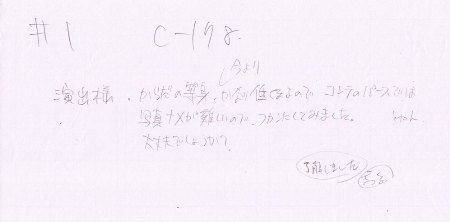 #1 C-178.
今より
演出様、からだの等身、かなり低くなるので コンテのパースでは
写真ナメが難しいので、フカンにしてみました。
大丈夫でしょうか?
了解しました